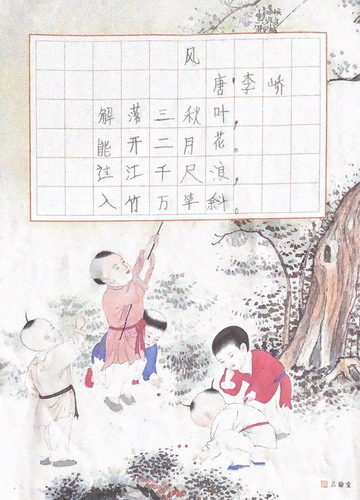 风
唐·李峤
解落三秋叶，
能开二月花。
过江千尺浪，
入竹万竿斜。